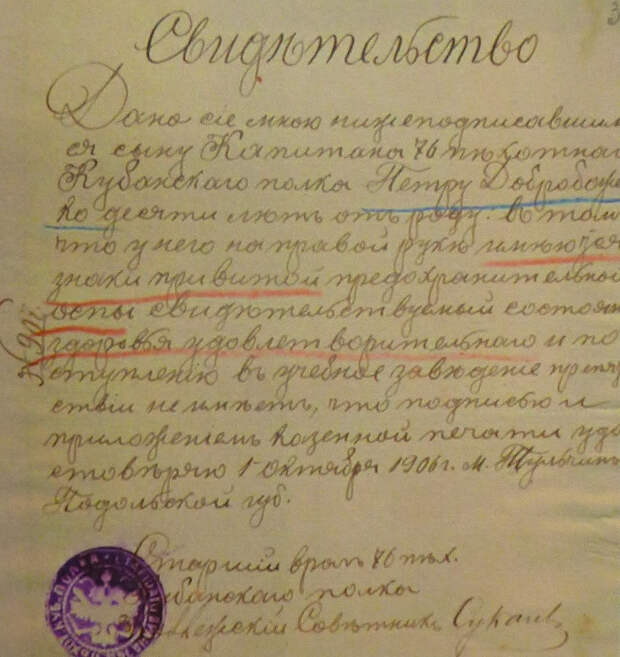 Свидѣтельство
Дано сіе мною нижеподписавшим
ся сыну Капитана 76 пѣхотнаг
Кубанскаго полка Петру Добробоже
ко десяти лѣтъ отъ роду въ том
что у него на правой рукѣ имѣются
знаки привитой предохранительной
оспы свидѣтельствуемый состоян
здоровья удовлетворительнаго и по
ступленію въ учебное заведеніе препя
ствій не имѣетъ, что подписью и
приложеніемъ казенной печати удо
стовѣряю 1 октября 1906 г. м. Тульчинъ
Подольской губ.
Старшій врачъ 76 пѣх.
Кубанскаго полка
Совѣтникъ